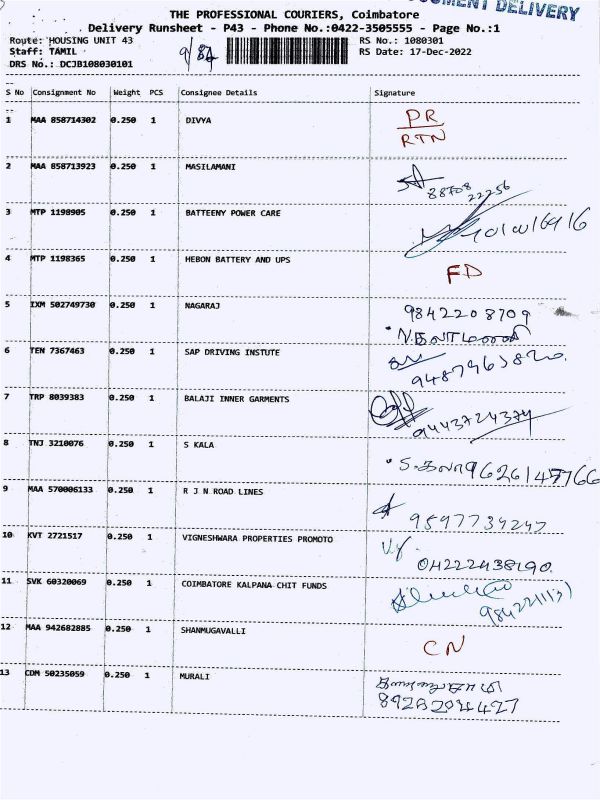 DOCUMENT DELIVERY
THE PROFESSIONAL COURIERS, Coimbatore
Delivery Runsheet - P43 - Phone No.:0422-3505555 - Page No.:1
Route: HOUSING UNIT 43 RS No.: 1080301
Staff: TAMIL RS Date: 17-Dec-2022
DRS No.: DCJB108030101
S No Consignment No Weight PCS Consignee Details Signature
1 MAA 858714302 0.250 1 DIVYA PR
RTN
2 MAA 858713923 0.250 1 MASILAMANI
88708 22256
3 MTP 1198905 0.250 1 BATTEENY POWER CARE
4 MTP 1198365 0.250 1 HEBON BATTERY AND UPS FD
5 IXM 502749730 0.250 1 NAGARAJ 9842208709
6 TEN 7367463 0.250 1 SAP DRIVING INSTUTE
7 TRP 8039383 0.250 1 BALAJI INNER GARMENTS
9443724374
8 TNJ 3210076 0.250 1 S KALA
S.கலா
9 MAA 570006133 0.250 1 R J N ROAD LINES
9597739247
10 KVT 2721517 0.250 1 VIGNESHWARA PROPERTIES PROMOTO
04222438190
11 SVK 60320069 0.250 1 COIMBATORE KALPANA CHIT FUNDS
12 MAA 942682885 0.250 1 SHANMUGAVALLI CN
13 CDM 50235059 0.250 1 MURALI